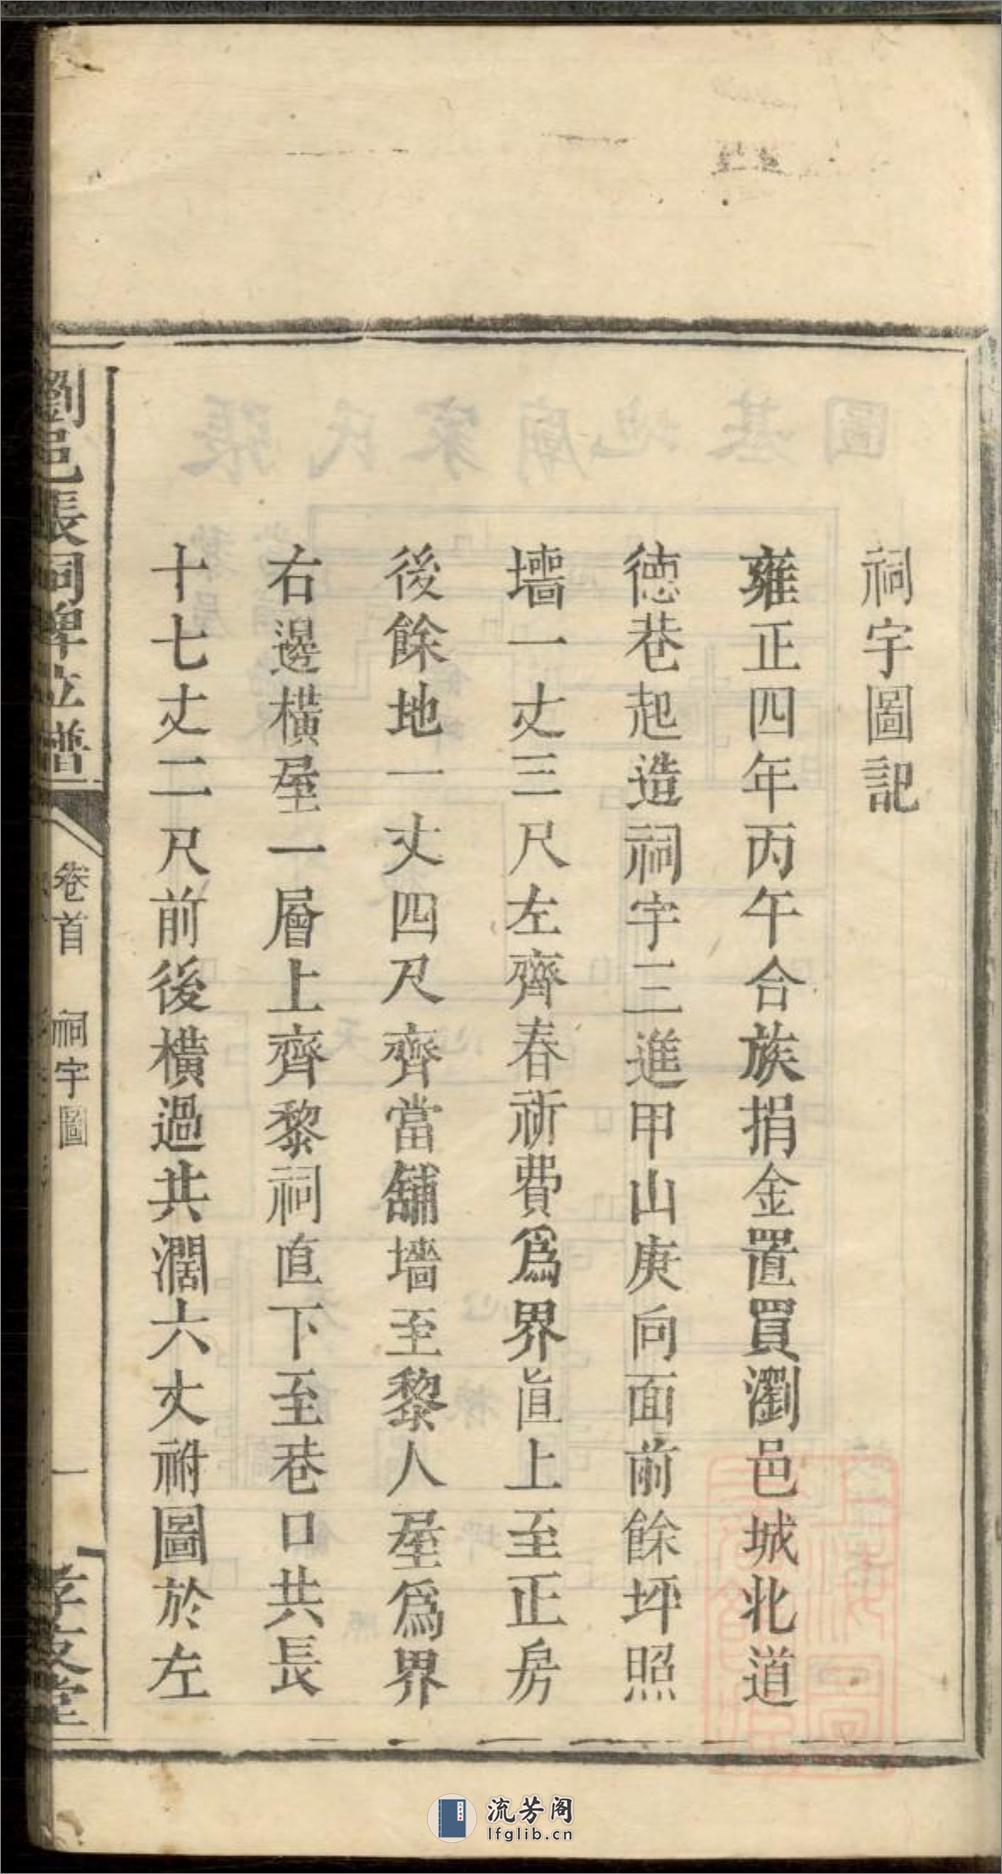 祠宇圖記
雍正四年丙午合族捐金置買瀏邑城北道
德巷起造祠宇三進甲山庚向面前餘坪照
墻一丈三尺左齊春祈費爲界直上至正房
後餘地一丈四尺齊當舖墻至黎人屋爲界
右邊橫屋一層上齊黎祠直下至巷口共長
十七丈二尺前後橫過共濶六丈祔圖於左
瀏邑張祠牌位譜
卷首 祠宇圖
一
孝友堂
圖基地廟家氏張
流芳阁
lfglib.cn